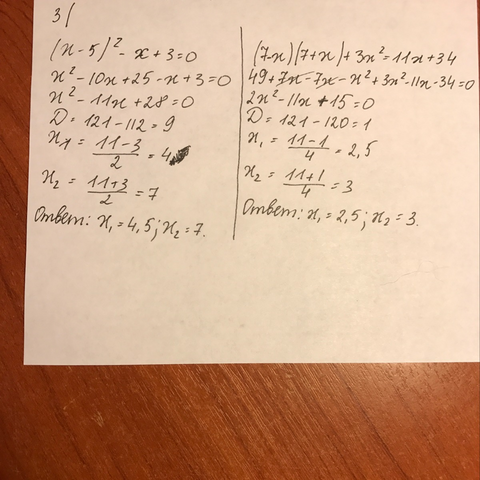 3(
(x-5)² - x + 3 = 0
x² - 10x + 25 - x + 3 = 0
x² - 11x + 28 = 0
D = 121 - 112 = 9
x₁ = (11-3)/2 = 4
x₂ = (11+3)/2 = 7
Ответ: x₁ = 4,5; x₂ = 7.
(7x)(7+x) + 3x² = 11x + 34
49 + 7x - 7x - x² + 3x² - 11x - 34 = 0
2x² - 11x + 15 = 0
D = 121 - 120 = 1
x₁ = (11-1)/4 = 2,5
x₂ = (11+1)/4 = 3
Ответ: x₁ = 2,5; x₂ = 3.